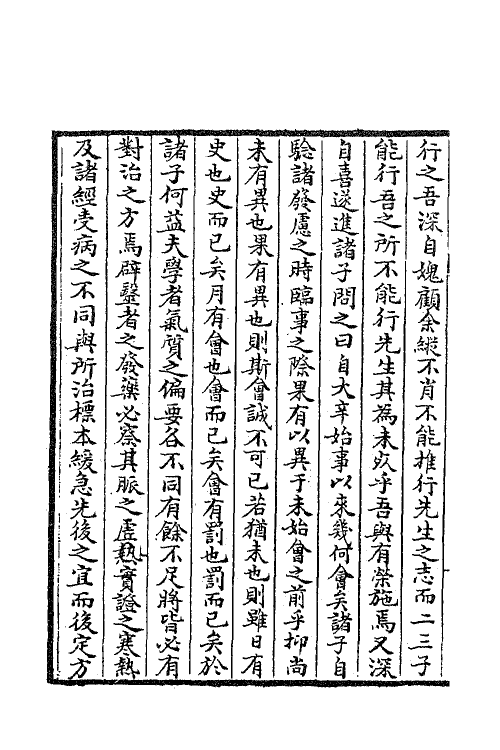 行之吾深自媿顧余縱不肖不能推行先生之志而二三子
能行吾之所不能行先生其為未歿乎吾與有榮施焉又深
自喜遂進諸子問之曰自大辛始事以來幾何會矣諸子自
驗諸發慮之時臨事之際果有以異于未始會之前乎抑尚
未有異也果有異也則斯會誠不可已若猶未也則雖日有
史也史而已矣月有會也會而已矣會有罰也罰而已矣於
諸子何益夫學者氣質之偏要各不同有餘不足將皆必有
對治之方焉辟毉者之發藥必察其脈之虛熱實證之寒熱
及諸經受病之不同與所治標本緩急先後之宜而後定方